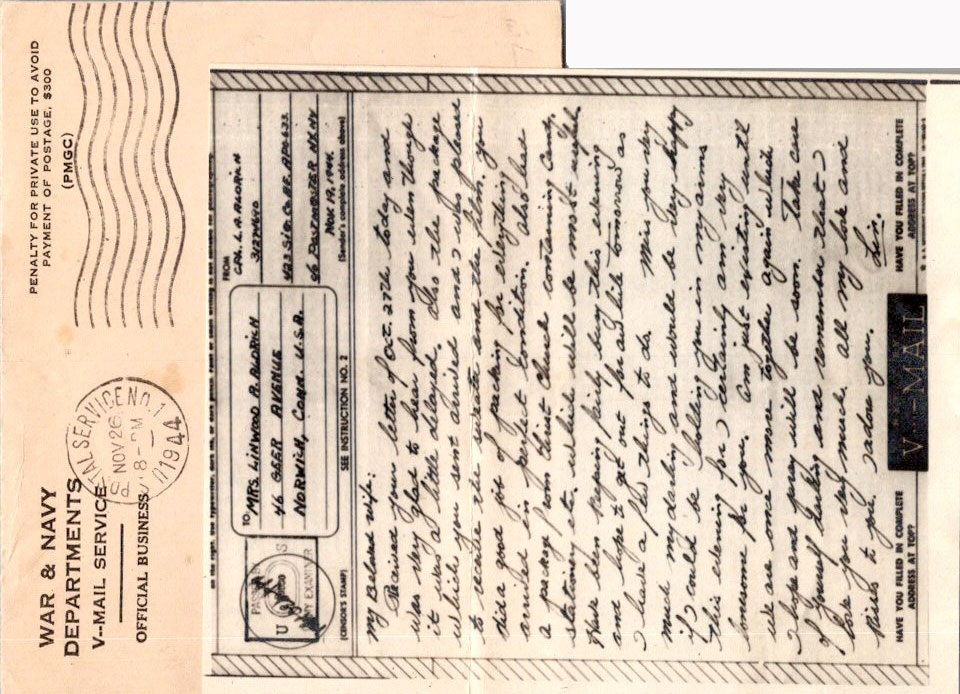 PENALTY FOR PRIVATE USE TO AVOID
PAYMENT OF POSTAGE, $300
(PMGC)
WAR & NAVY
DEPARTMENTS
V--MAIL SERVICE
OFFICIAL BUSINESS
POSTAL SERVICE NO. 1
NOV 26
8-PM
1944
TO MRS. LINWOOD A. ALDRICH
46 GEER AVENUE
NORWICH, CONN. U.S.A.
FROM
CPL. L. A. ALDRICH
31274640
423 SIG. CO. BE. APO 633
c/o POSTMASTER NY NY
NOV. 19, 1944.
(Sender's complete address above)
SEE INSTRUCTION NO. 2
(CENSOR'S STAMP)
PASSED BY
U S
ARMY EXAMINER
My Beloved Wife:
Received your letter of Oct. 27th today and
was very glad to hear from you even though
it was a little delayed. Also the package
which you sent arrived and I was pleased
to receive the sweater and the film. You
did a good job of packing for everything
arrived in perfect condition. Also had
a package from Christ Church containing candy,
stationery etc. which will be most useful.
Have been keeping fairly busy this evening
and hope to get out for awhile tomorrow as
I have a few things to do. Miss you very
much my darling and would be very happy
if I could be holding you in my arms
this evening for I certainly am very
lonesome for you. Am just existing until
we are once more together again which
I hope and pray will be soon. Take care
of yourself darling and remember that I
love you very much. All my love and
kisses to you. I adore you.
Lin.
HAVE YOU FILLED IN COMPLETE
ADDRESS AT TOP?
V--MAIL
HAVE YOU FILLED IN COMPLETE
ADDRESS AT TOP?